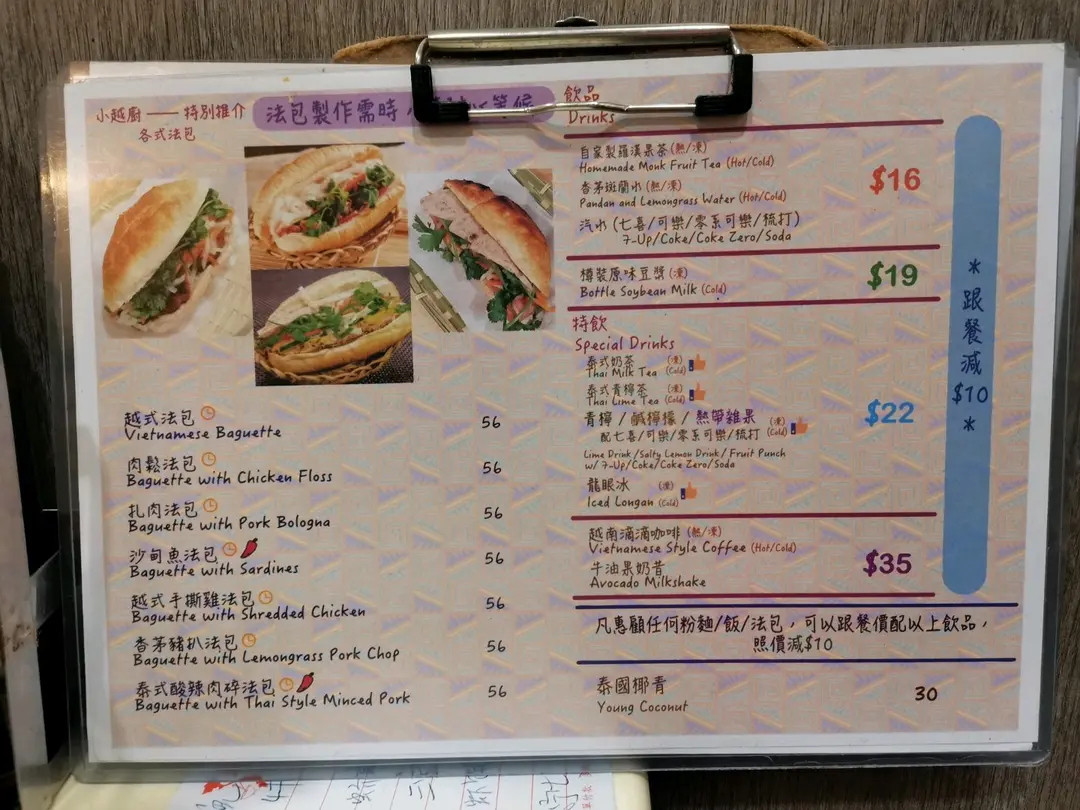 小越廚 —— 特別推介
各式法包
法包製作需時
越式法包
Vietnamese Baguette 56
肉鬆法包
Baguette with Chicken Floss 56
扎肉法包
Baguette with Pork Bologna 56
沙甸魚法包
Baguette with Sardines 56
越式手撕雞法包
Baguette with Shredded Chicken 56
香茅豬扒法包
Baguette with Lemongrass Pork Chop 56
泰式酸辣肉碎法包
Baguette with Thai Style Minced Pork 56
飲品
Drinks
自家製羅漢果茶 (熱/凍)
Homemade Monk Fruit Tea (Hot/Cold)
香茅斑蘭水 (熱/凍)
Pandan and Lemongrass Water (Hot/Cold)
汽水 (七喜/可樂/零系可樂/梳打)
7-Up/Coke/Coke Zero/Soda
$16
樽裝原味豆漿 (凍)
Bottle Soybean Milk (Cold)
$19
特飲
Special Drinks
泰式奶茶 (凍)
Thai Milk Tea (Cold)
泰式青檸茶 (凍)
Thai Lime Tea (Cold)
青檸 / 鹹檸檬 / 熱帶雜果 (凍)
配七喜/可樂/零系可樂/梳打 (Cold)
Lime Drink /Salty Lemon Drink / Fruit Punch
w/ 7-Up/Coke/Coke Zero/Soda
龍眼冰 (凍)
Iced Longan (Cold)
$22
越南滴滴咖啡 (熱/凍)
Vietnamese Style Coffee (Hot/Cold)
牛油果奶昔
Avocado Milkshake
$35
凡惠顧任何粉麵/飯/法包，可以跟餐價配以上飲品，
照價減$10
泰國椰青
Young Coconut 30
*
跟
餐
減
$10
*